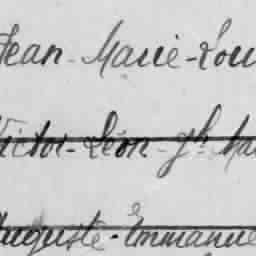 Jean-Marie-Lou
Victor-Léon-Jh Ma
Auguste-Emmanue